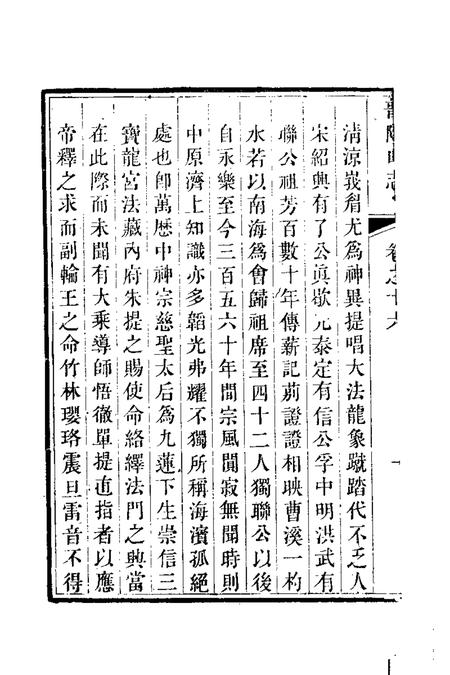 清涼峩眉尤爲神異提唱大法龍象蹴踏代不乏人
宋紹興有了公眞歇元泰定有信公孚中明洪武有
聯公祖芳百數十年傳薪記莂證證相映曹溪一杓
水若以南海爲會歸祖席至四十二人獨聯公以後
自永樂至今三百五六十年間宗風闃寂無聞時則
中原濟上知識亦多韜光弗耀不獨所稱海濱孤絕
處也卽萬歷中神宗慈聖太后爲九蓮下生崇信三
寶龍宮法藏內府朱提之賜使命絡繹法門之興當
在此際而未聞有大乘導師悟徹單提直指者以應
帝釋之求而副輪王之命竹林瓔珞震旦雷音不得